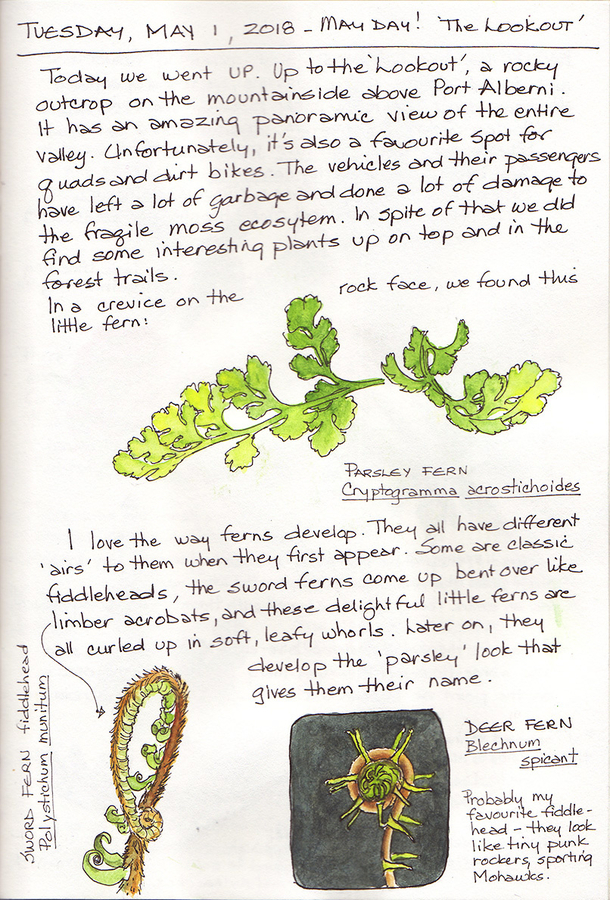 TUESDAY, MAY 1, 2018 - MAY DAY! 'The Lookout'
Today we went UP. Up to the 'Lookout', a rocky
outcrop on the mountainside above Port Alberni.
It has an amazing panoramic view of the entire
valley. Unfortunately, it's also a favourite spot for
quads and dirt bikes. The vehicles and their passengers
have left a lot of garbage and done a lot of damage to
the fragile moss ecosytem. In spite of that we did
find some interesting plants up on top and in the
forest trails.
In a crevice on the rock face, we found this
little fern:
PARSLEY FERN
Cryptogramma acrostichoides
I love the way ferns develop. They all have different
'airs' to them when they first appear. Some are classic
fiddleheads, the sword ferns come up bent over like
limber acrobats, and these delightful little ferns are
all curled up in soft, leafy whorls. Later on, they
develop the 'parsley' look that
gives them their name.
SWORD FERN fiddlehead
Polystichum munitum
DEER FERN
Blechnum
spicant
Probably my
favourite fiddle-
head - they look
like tiny punk
rockers, sporting
Mohawks.